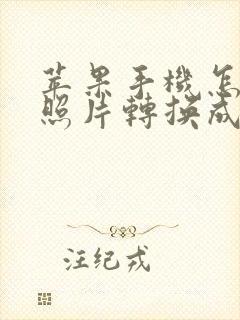 苹果手機怎
照片轉换成
汪纪戎